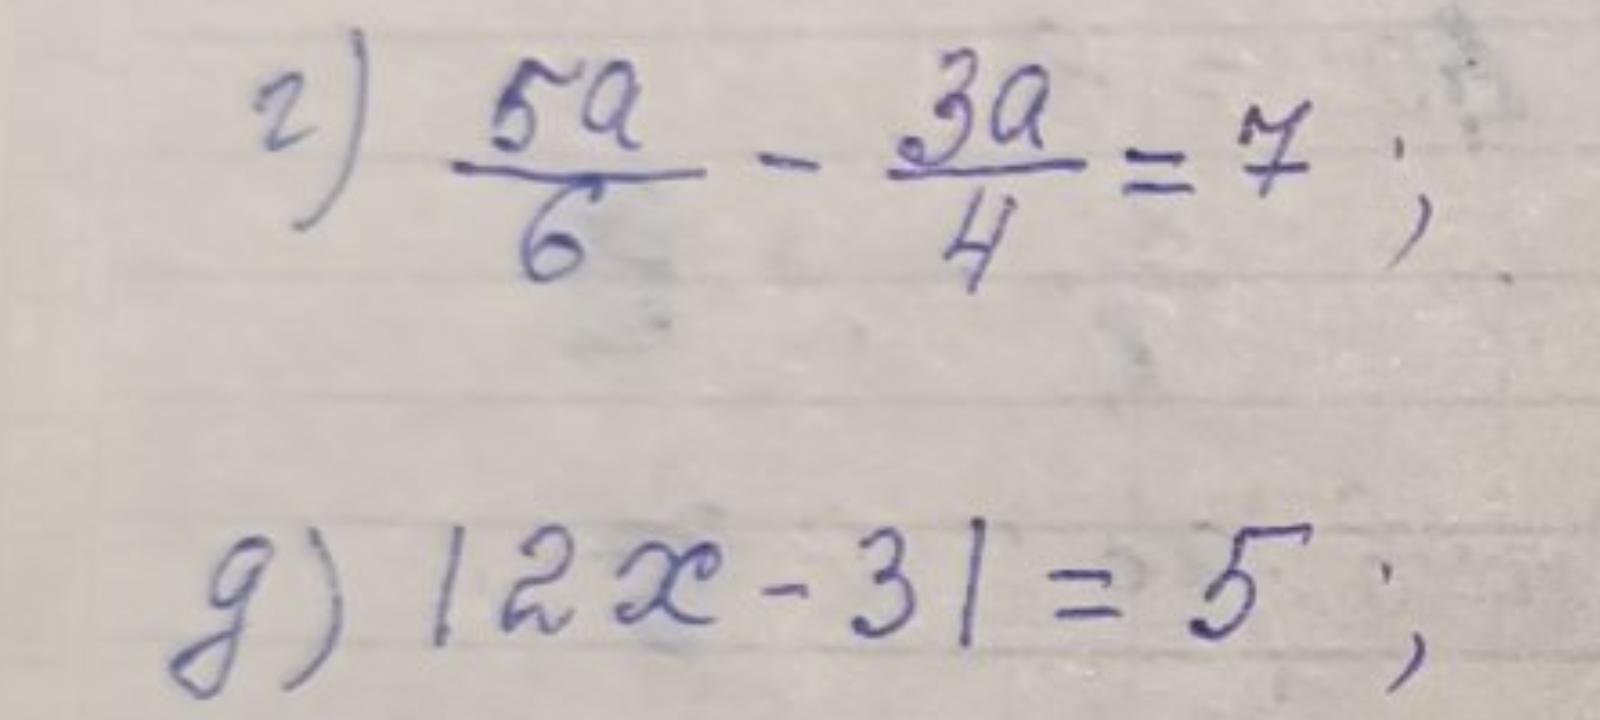 г) 5a/6 - 3a/4 = 7 ;
д) |2x - 3| = 5 ;